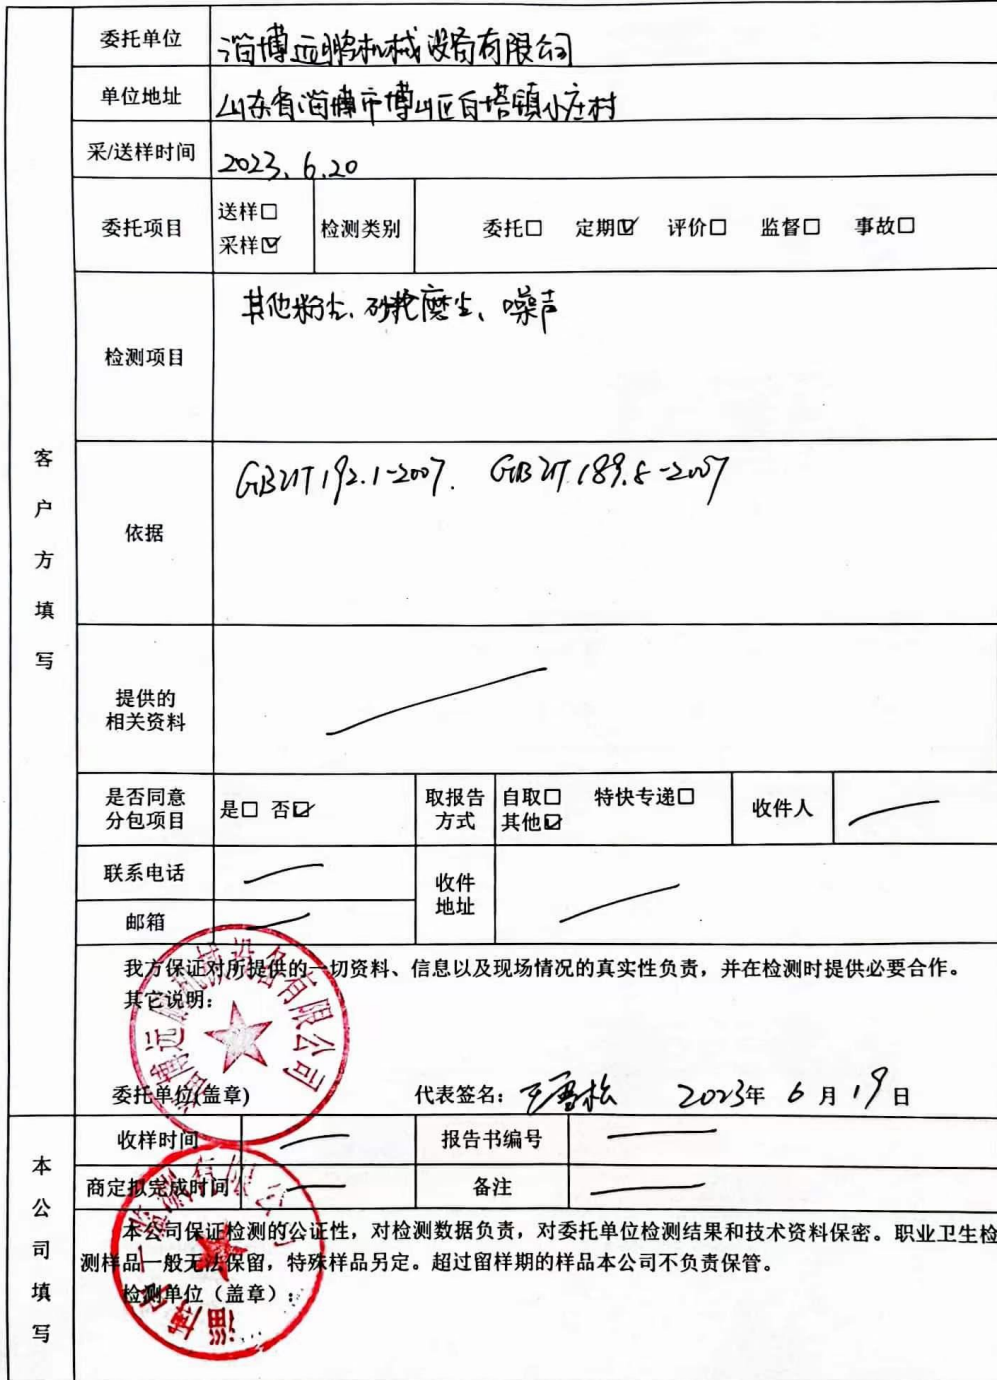 委托单位 淄博远鹏机械设备有限公司
单位地址 山东省淄博市博山区白塔镇小庄村
采/送样时间 2023.6.20
委托项目 送样□ 采样☑ 检测类别 委托□ 定期☑ 评价□ 监督□ 事故□
检测项目 其他粉尘、砂轮磨尘、噪声
客户方填写
依据 GBZ/T 192.1-2007. GBZ/T 189.8-2007
提供的
相关资料
是否同意
分包项目 是□ 否☑
取报告
方式 自取□ 特快专递□
其他☑
收件人
联系电话
收件
地址
邮箱
我方保证对所提供的一切资料、信息以及现场情况的真实性负责，并在检测时提供必要合作。
其它说明：
委托单位(盖章) 代表签名： 2023年 6月 19日
淄博远鹏机械设备有限公司
本公司填写
收样时间 报告书编号
商定拟完成时间 备注
本公司保证检测的公证性，对检测数据负责，对委托单位检测结果和技术资料保密。职业卫生检
测样品一般无法保留，特殊样品另定。超过留样期的样品本公司不负责保管。
检测单位（盖章）：